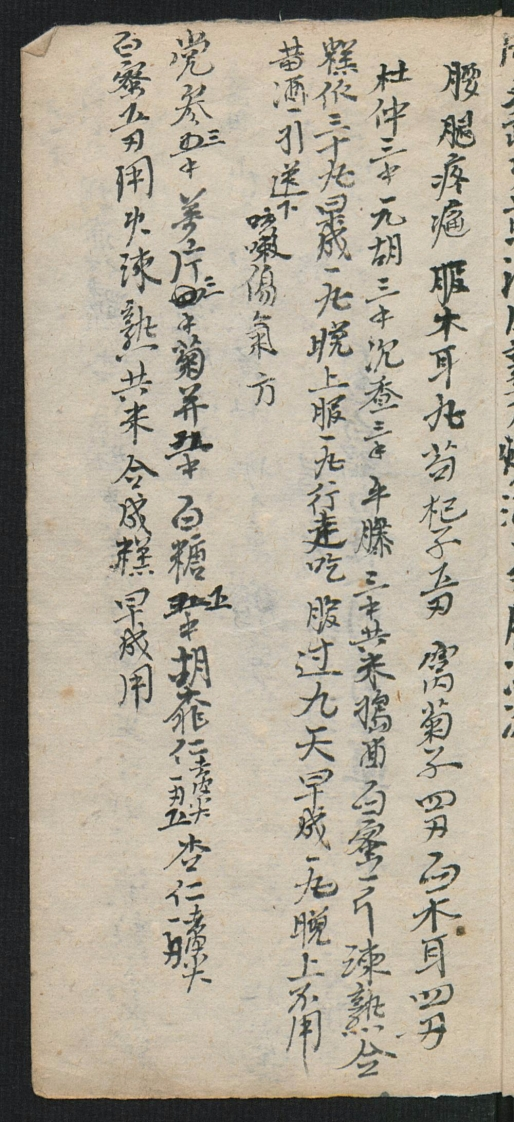 腰腿疼痛 服木耳丸 苟杞子五刄 窝菊子四刄 白木耳四刄
杜仲三中 元胡三中 沉香三中 牛膝三中 共末搗面 白蜜一斤 涷熟合
糕依三十丸 早成一丸 晚上服一丸 行走吃 服过九天 早成一丸 晚上不用
黄酒一引送下
咳嗽傷氣方
党参三中 芩片三中 菊并五中 白糖五中 胡菲仁一刄五去皮尖 杏仁一刄去皮尖
白蜜五刄 用火涷熟 共末合成糕 早成用